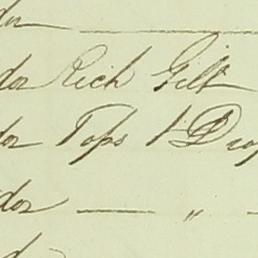 do
do Rich Gilt
do Tops 1 Drop
do — " -
d